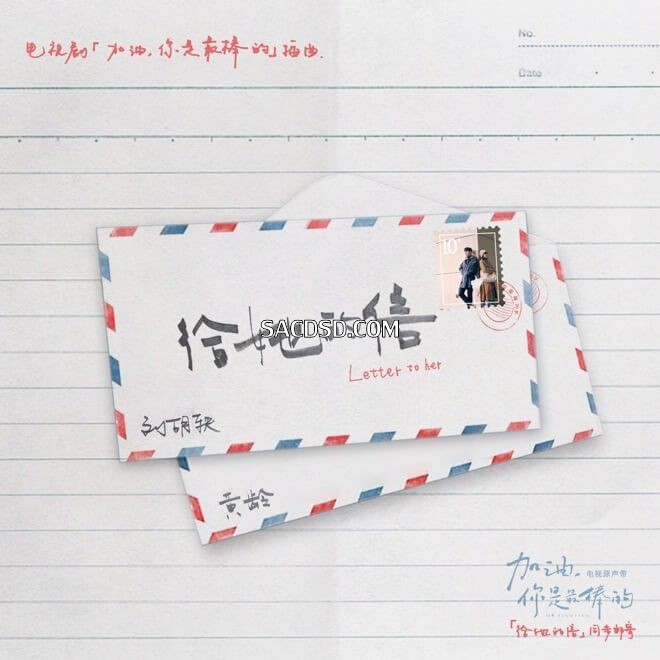 电视剧「加油，你是最棒的」插曲
No.
Date
10
给她的信
SACDSD.COM
Letter to her
刘胡轶
黄龄
加油，
电视原声带
你是最棒的
MR FIGHTING
「给她的信」同步邮寄